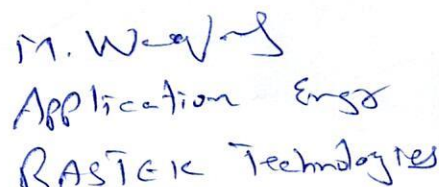 M.
Application Engr
RASTEK Technologies